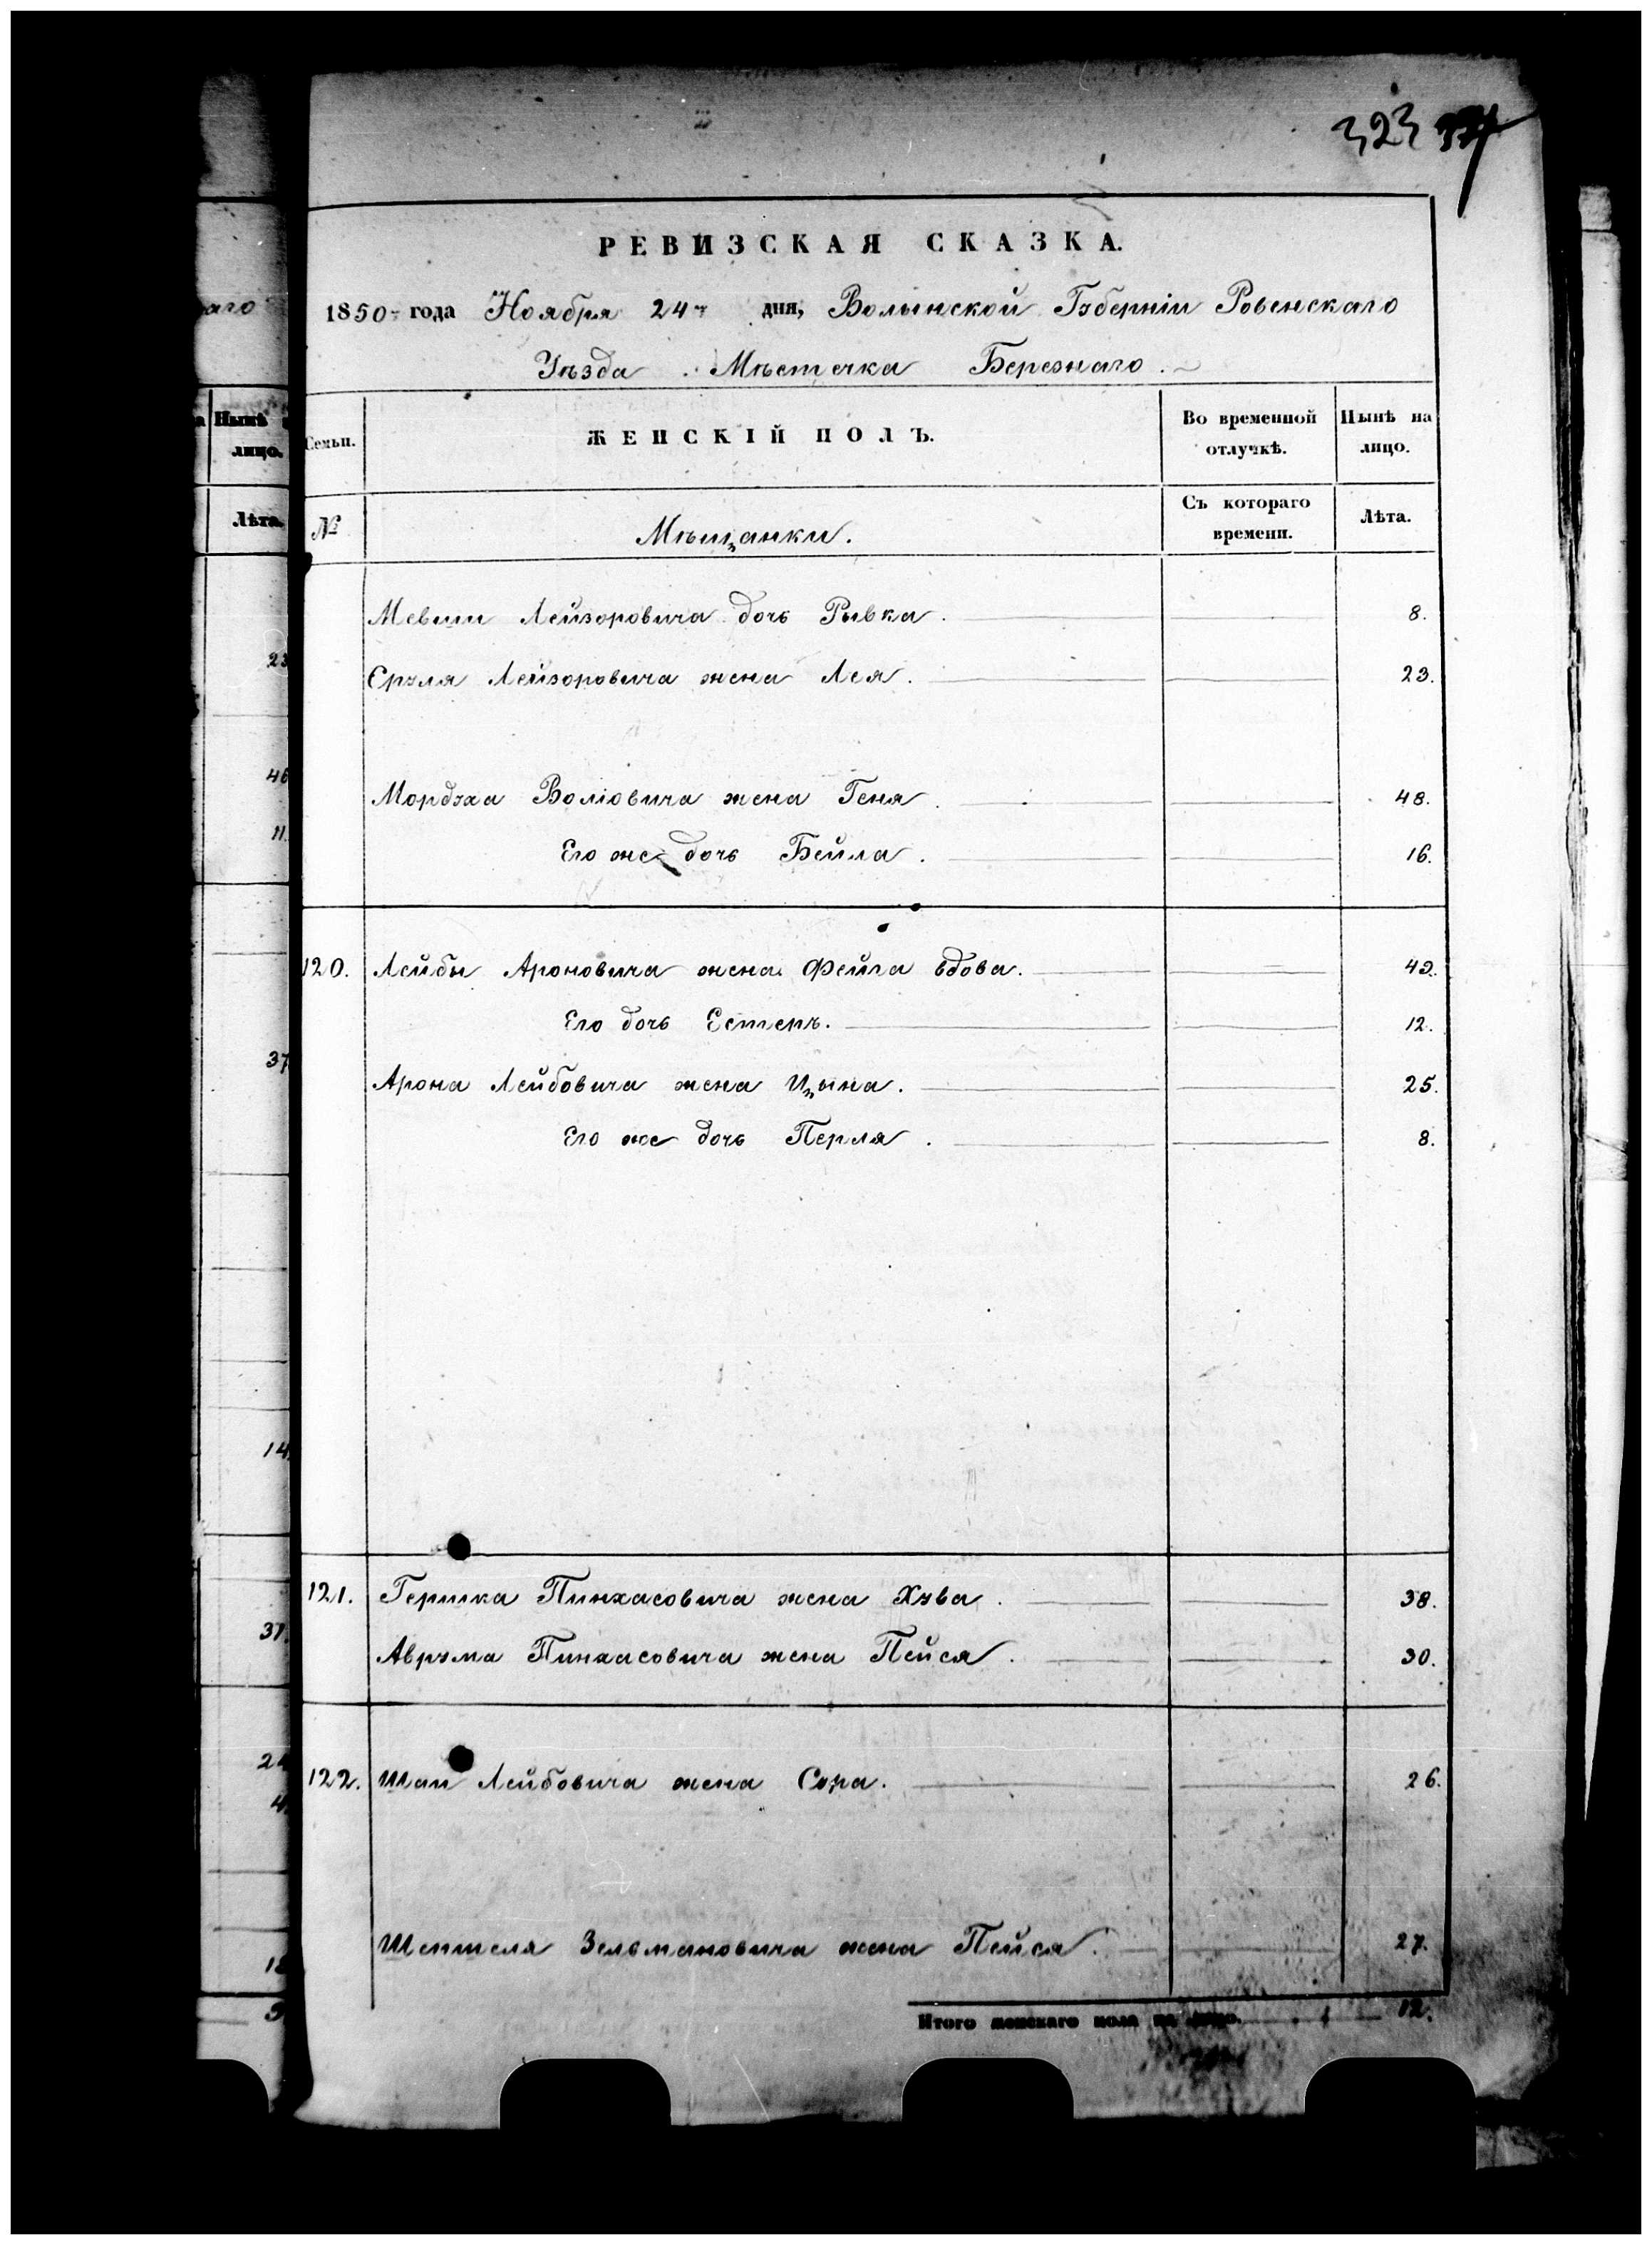 323
РЕВИЗСКАЯ СКАЗКА.
1850 года Ноября 24 дня, Волынской Губерніи Ровенскаго
Уѣзда Мѣстечка Березнаго.
аго
Нынѣ
лицо.
Лѣта.
Семьи.
ЖЕНСКІЙ ПОЛЪ.
Во временной отлучкѣ.
Нынѣ на лицо.
№
Мѣщанки.
Съ котораго времени.
Лѣта.
Мевши Лейзоровича дочь Рывка. 8.
Сруля Лейзоровича жена Лея. 23.
Мордуха Волковича жена Геня. 48.
Его же дочь Бейла. 16.
120. Лейбы Ароновича жена Фейга вдова. 49.
Его дочь Естеръ. 12.
Арона Лейбовича жена Цына. 25.
Его же дочь Перля. 8.
121. Гершка Пинхасовича жена Хува. 38.
Аврума Пинхасовича жена Пейся. 30.
122. Шаи Лейбовича жена Сура. 26.
Шепселя Зельмановича жена Пейся. 27.
Итого женскаго пола на лицо. 12.
46
11.
37
14.
37.